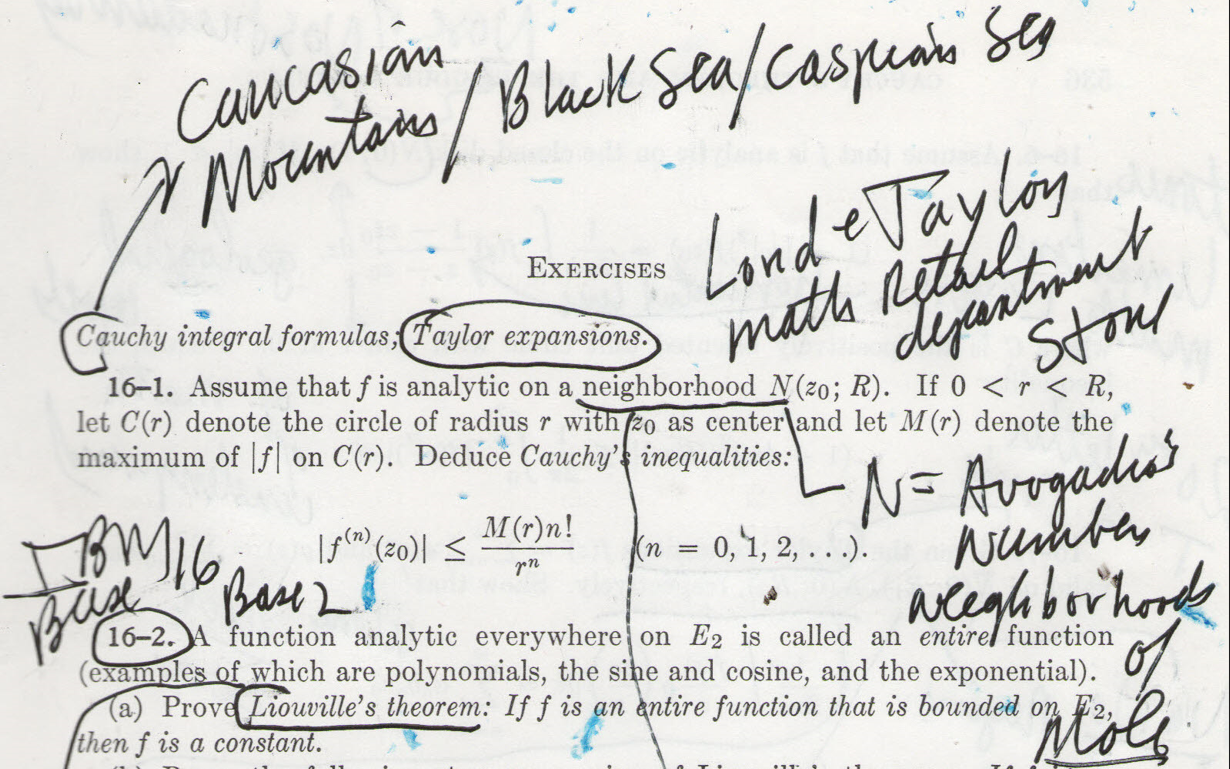 Caucasian
Mountains / Black Sea/Caspian Sea
Lord & Taylor
math retail
department
store
EXERCISES
Cauchy integral formulas; Taylor expansions.
16–1. Assume that f is analytic on a neighborhood N(z₀; R). If 0 < r < R,
let C(r) denote the circle of radius r with z₀ as center and let M(r) denote the
maximum of |f| on C(r). Deduce Cauchy's inequalities:
N = Avogadro's
Number
neighborhoods
of
Mole
|f⁽ⁿ⁾(z₀)| ≤ M(r)n!/rⁿ (n = 0, 1, 2, . . .).
IBM 16
Base
Base 2
16–2. A function analytic everywhere on E₂ is called an entire function
(examples of which are polynomials, the sine and cosine, and the exponential).
(a) Prove Liouville's theorem: If f is an entire function that is bounded on E₂,
then f is a constant.